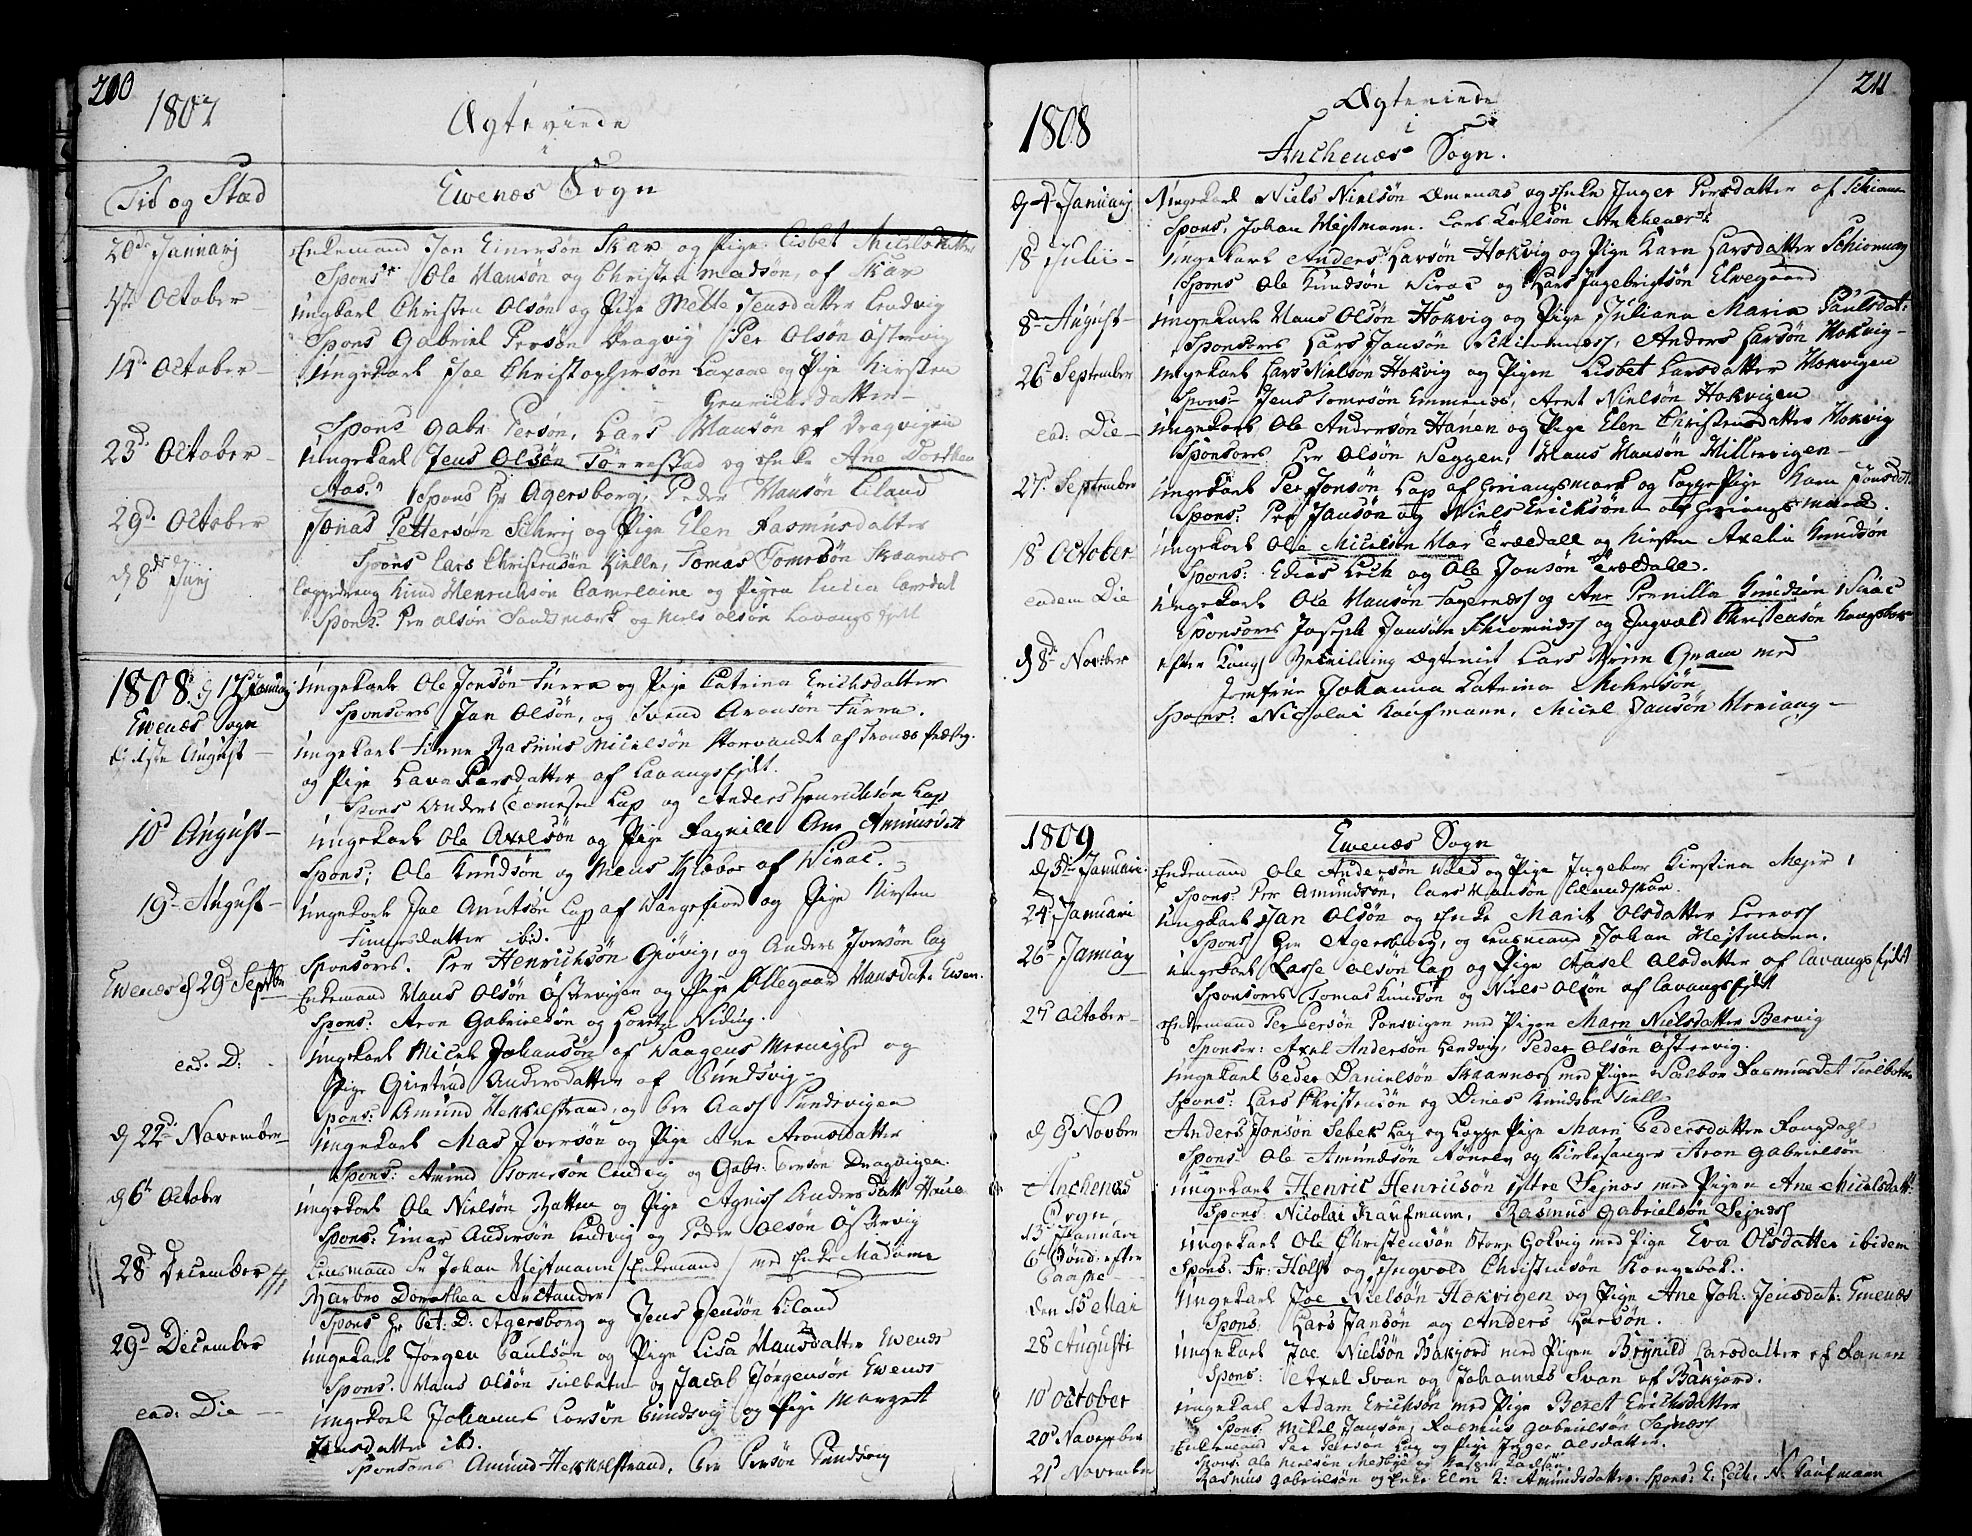 210
1807
Ægteviede
i
Tid og Stæd
Ewenæs Sogn
20de Januarj
Enkemand Jon Einersøn Skar og Pige Lisbet Michelsdatter
Spons Ole Hansøn og Christen Madsøn, af Skar
4de October
Ungkarl Christen Olsøn og Pige Mette Jensdatter Lendvig
Spons Gabriel Persøn Dragvig Per Olsøn Østervig
14d October
Ungekarl Joe Christophersøn Laxaae og Pige Kirsten
Henrichsdatter
Spons Gabr: Persøn, Lars Hansøn af Dragvigen
23d October
Ungekarl Jens Olsøn Tørrestad og Enke Ane Dorthea
Aas. Spons Hr Agersborg, Peder Hansøn Liland
29d October
Jonas Pettersøn Schrij og Pige Elen Rasmusdatter
Spons Lars Christensøn Kielle, Tomas Tomesøn Skaanæs
d 8de Junj
Lappedreng Knud Henrichsøn og Pigen Lucia Larsdat
Spons: Per Olsøn Sandsmark og Niels Olsøn Lavangsfjelt
1808 d 12 Januarj
Ungekarl Ole Jonsøn Furra og Pige Catrina Erichsdatter
Sponsores Jan Olsøn, og Svend Aronsøn Furra.
Ewenæs Sogn
d: 1ste August
Ungekarl Finne Rasmus Michelsøn Storvandet af Tronæs Præsteg.
og Pige Lava Larsdatter af Lavangsfjelt.
Spons Anders Tomesen Lap og Anders Henrichsøn Lap
10d August
Ungekarl Ole Axelsøn og Pige Ragnill Ane Amundsdatt
Spons: Ole Knudsøn og Mens Klæboe af Wirac.
19d August
Ungekarl Joe Anutsøn Lap af Wargefiord og Pige Kirsten
Finnersdatter ibid.
Sponsores. Per Henrichsøn Giøvig, og Anders Iversøn Lap
Ewenæs d 29d Septbr
Enkemand Hans Olsøn Østervigen og Pige Ollegaar Hansdat: Ewen.
Spons: Aron Gabrielsøn og Lorentz Niding.
ead. D:
Ungekarl Michel Johansøn af Waagens Menighed og
Pige Giertrud Andersdatter af Sundsvig
Spons: Amund Hekkelstrand, og Per Aass Sundsvigen
d 22d November
Ungekarl Mas Iversøn og Pige Ane Aronsdatter
Spons: Amund Tomesøn Lendvig og Gabr: Persøn Dragvigen.
d 6t October
Ungekarl Ole Nielsøn Batten og Pige Agniss Andersdatt
Spons: Einar Andersøn Lendvig og Peder Olsøn Østervig
28d December
Lensmand Sr Johan Hejtmann /: Enkemand :/ med Enke Madame
Barbro Dorothea Anstander
Spons Hr Pet: D: Agersborg og Jens Jensøn Liland
29d December
Ungekarl Jørgen Paulsøn og Pige Lisa Hansdatter Ewenæs
Spons. Hans Olsøn og Jacob Jørgensøn Ewenæs
ead: Die
Ungekarl Johannes Larsøn Sundsvig og Pige Margett
Jensdatter ibd.
Sponsores Amund Hekkelstrand, Per Persøn Sundsvig
211
1808
Ægteviede
i
Anchenæs Sogn.
d 4d Januarj
Ungekarl Niels Nielsøn Emenæs og Enke Inger Persdatter af Schiomen
Spons, Johan Hejtmann. Lars Carlsøn Anchenæs
18 Julii
Ungekarl Anders Larsøn Hokvig og Pige Karn Larsdatter Schiomen
Spons Ole Knudsøn Wirac og Lars Ingebrigtsøn Elvegaard
8de August
Ungekarl Hans Olsøn Hokvig og Pige Juliana Maria Paulsdat:
Sponsores Lars Jansøn Schiomnæss, Anders Larsøn Hokvig
26 September
Ungekarl Lars Nielsøn Hokvig og Pigen Lisbet Larsdatter Hokvigen
Spons Jens Tomesøn Emmenæs, Arnt Nielsøn Hokvigen
ead: Die
Ungekarl Ole Andersøn Hanen og Pige Elen Christensdatter Hokvig
Sponsores Per Olsøn Weggen, Hans Hansøn Hillervigen
27. September
Ungekarl Per Jonsøn Lap af Heriangsmark og Lappe Pige Karn Jonsdat.
Spons: Per Jansøn og Niels Erichsøn af Heriangsmarck.
18 October
Ungekarl Ole Michelsen Mar Trældall og Kirsten Axelia Knudsøn
Spons: Edias Lech og Ole Jonsøn Trældall.
eadem Die
Ungekarl Ole Hansøn Fagernæss og Ane Pernilla Knudsøn Wirac
Sponsores Joseph Jansøn Schiomnæss og Ingvald Christensøn Kongsbak
d 8d Novber
efter Kongl Bevilning Ægteviet Lars Grim Qvam med
Jomfrue Johanna Catrina Mohrsøn
Spons: Nicholai Kaufmann, Michel Jansøn Heriang
1809
Ewenæs Sogn
d 5te Januari
Enkemand Ole Andersøn Wold og Pige Ingebor Kirstina Mejer
Spons: Per Amundsøn, Lars Hansøn
24d Januari
Ungekarl Jan Olsøn og Enke Marit Olsdatter
Spons Herr Agersborg, og Lensmand Johan Hejtmann.
26d Januarj
Ungekarl Lasse Olsøn Lap og Pige Aasel Olsdatter af Lavangsfjelt
Sponsores Tomas Knudsøn og Niels Olsøn af Lavangsfjelt
27 October
Enkemand Per Persøn Ponsvigen med Pigen Marn Nielsdatter Bervig
Sponsor: Axel Andersøn Lendvig, Peder Olsøn Østervig.
Ungekarl Peder Danielsøn Skaanæss med Pigen Walbor Rasmusdat
Spons: Lars Christensøn og Dines Knudsen Kielle
d 9 Novben
Anders Jonsøn Sebek Lap og Lappe Pige Marn Pedersdatter
Spons Ole Amundsøn og Kirkesanger Aron Gabrielsøn
Anchenæs
Sogn
13 Januari
Ungekarl Henric Henricsøn Yttre Sejnæs med Pigen Ane Michelsdatt:
Spons: Nicolai Kaufmann, Rasmus Gabrielsøn Sejnæss
6te Sønd: efter
Paaske
Ungekarl Ole Christensøn Store Hokvig med Pige Eva Olsdatter ibidem
Spons. Fr: Holst og Ingvold Christensøn Kongsbak.
den 15 Mai
Ungekarl Joe Nielsøn Hokvigen og Pige Ane Joh: Jensdat: Emenæs
Spons. Lars Jansøn og Anders Larsøn.
28 Augusti
Ungekarl Joe Nielsøn Bakjord med Pigen Brynild Larsdatter af Ranen
Spons: Axel Svan og Johannes Svan af Bakjord.
10 October
Ungekarl Adam Erichsøn med Pige Beret Erichsdatter
Spons: Mikel Jansøn, Rasmus Gabrielsøn Sejnæss
20d November
Enkemand Per Persøn Lap og Pige Inger Olsdatter.
Spons: Ole Nielsøn og Carlsøn
21 November
Rasmus Gabrielsøn og Enke Elen L: Amundsdatter. Spons: E: Lech. N: Kaufmann